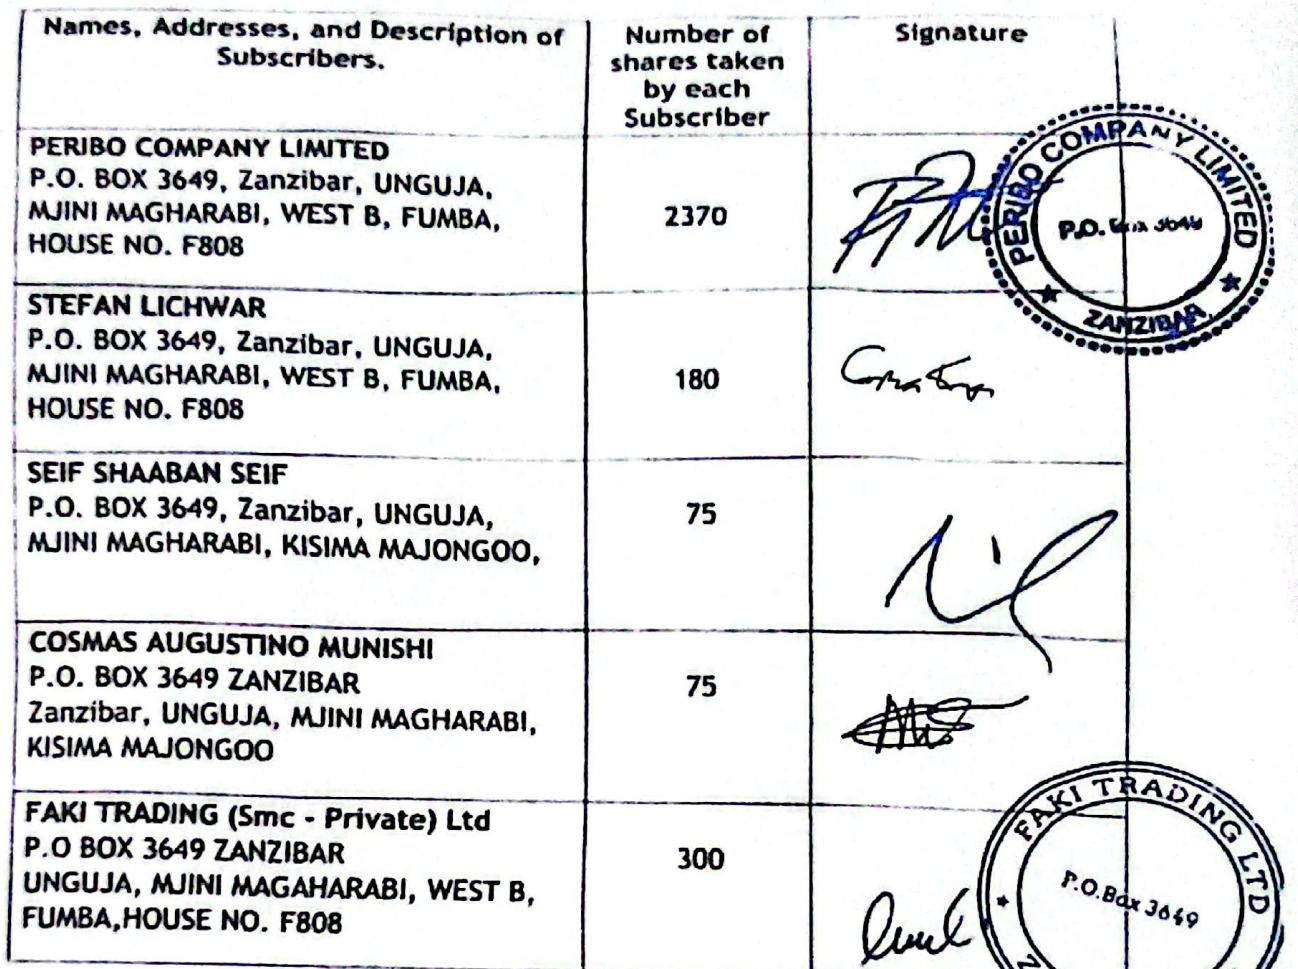 Names, Addresses, and Description of
Subscribers.
Number of
shares taken
by each
Subscriber
Signature
PERIBO COMPANY LIMITED
P.O. BOX 3649, Zanzibar, UNGUJA,
MJINI MAGHARABI, WEST B, FUMBA,
HOUSE NO. F808
2370
PERIBO COMPANY LIMITED
P.O. Box 3649
ZANZIBAR
STEFAN LICHWAR
P.O. BOX 3649, Zanzibar, UNGUJA,
MJINI MAGHARABI, WEST B, FUMBA,
HOUSE NO. F808
180
SEIF SHAABAN SEIF
P.O. BOX 3649, Zanzibar, UNGUJA,
MJINI MAGHARABI, KISIMA MAJONGOO,
75
COSMAS AUGUSTINO MUNISHI
P.O. BOX 3649 ZANZIBAR
Zanzibar, UNGUJA, MJINI MAGHARABI,
KISIMA MAJONGOO
75
FAKI TRADING (Smc - Private) Ltd
P.O BOX 3649 ZANZIBAR
UNGUJA, MJINI MAGAHARABI, WEST B,
FUMBA,HOUSE NO. F808
300
FAKI TRADING LTD
P.O.Box 3649